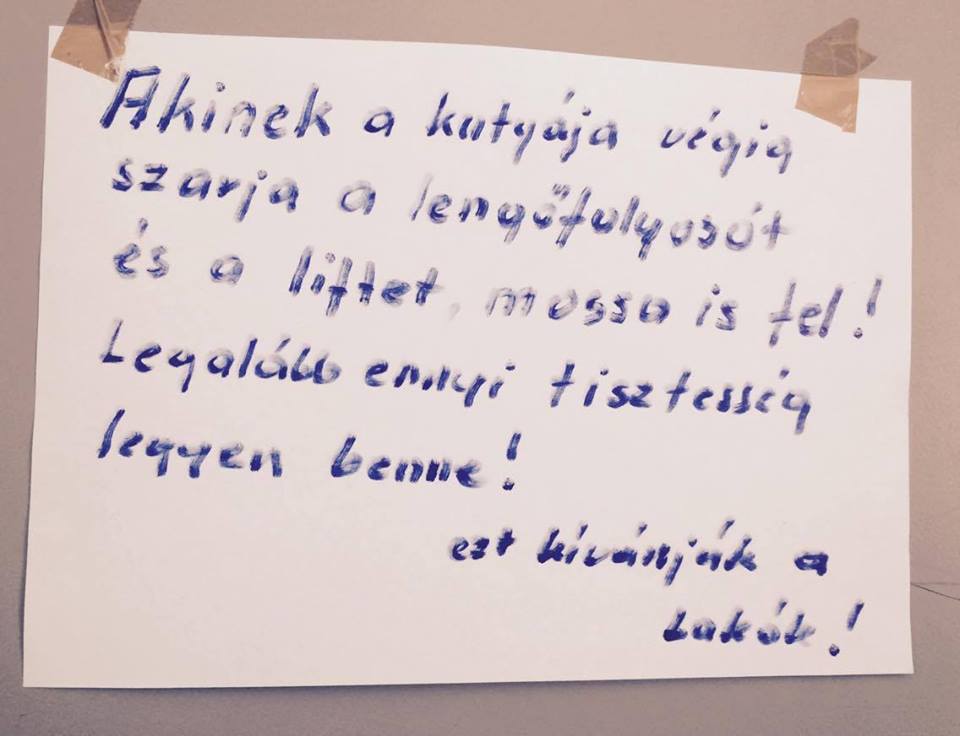 Akinek a kutyája végig
szarja a lengőfolyosót
és a liftet, mossa is fel!
Legalább ennyi tisztesség
legyen benne!
ezt kívánják a
Lakók!